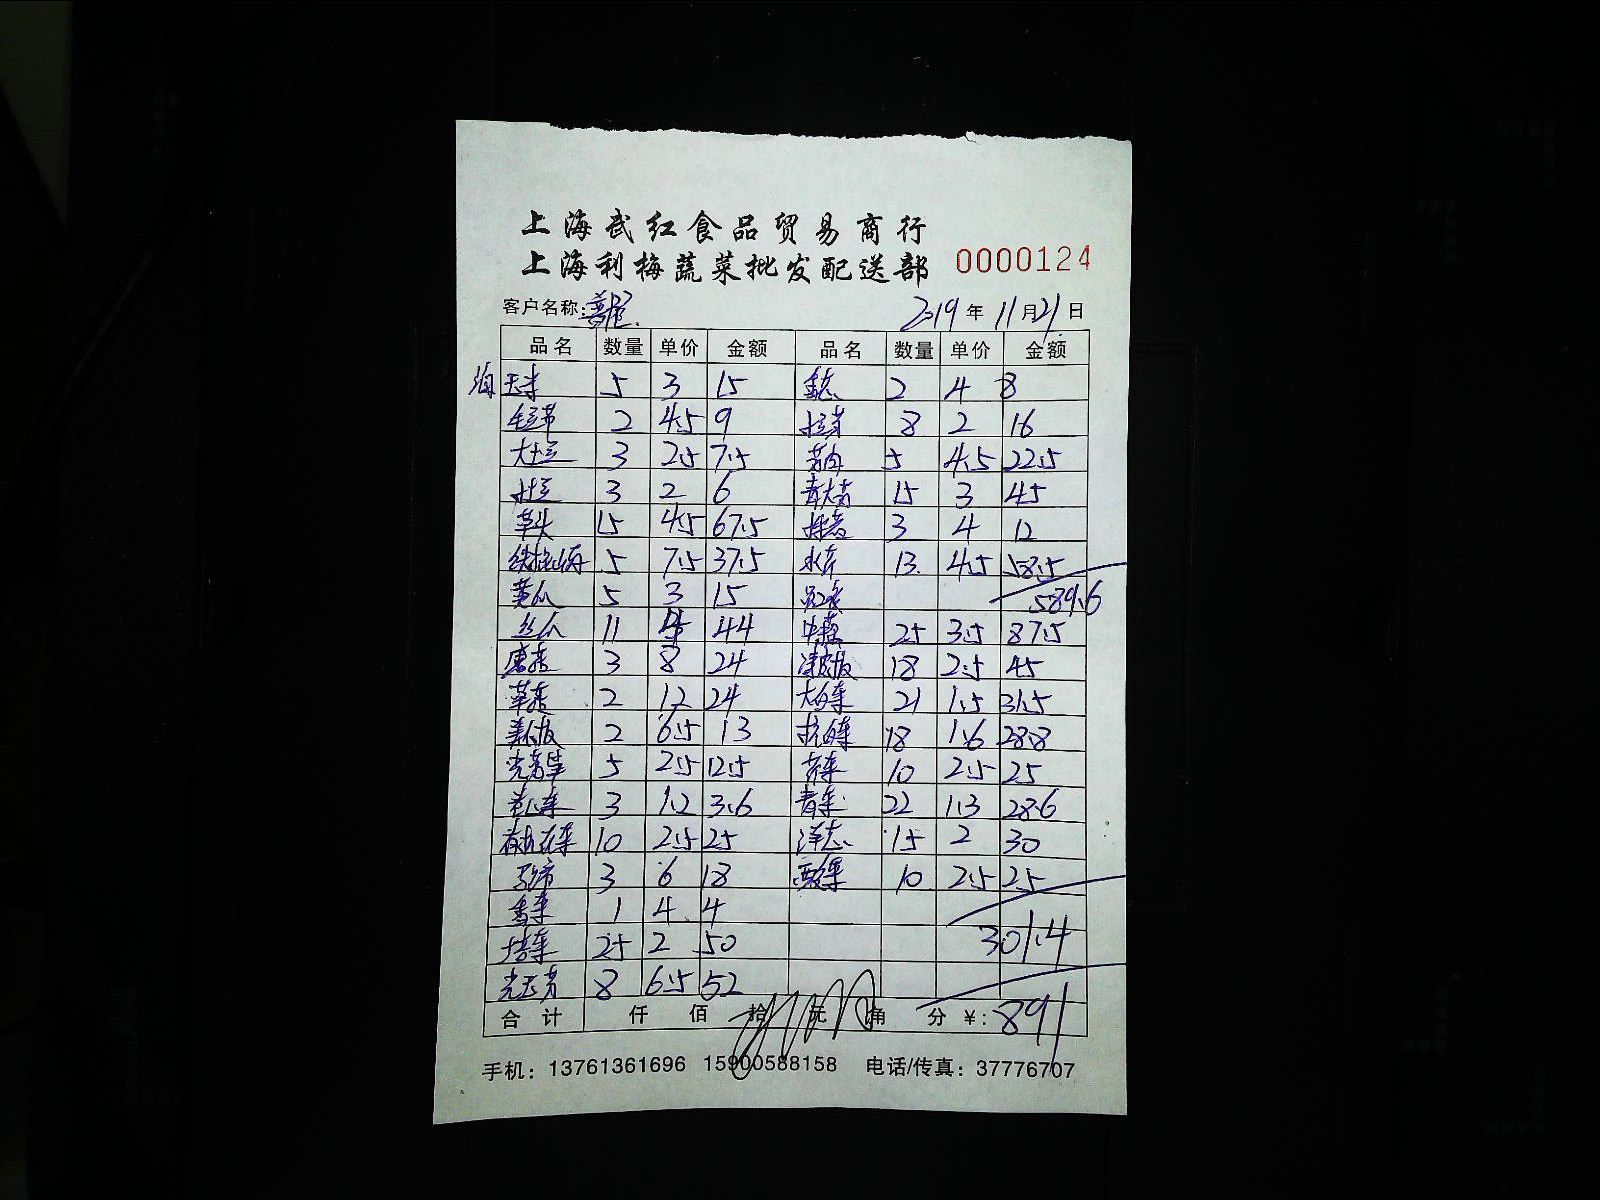 上海武红食品贸易商行
上海利梅蔬菜批发配送部 0000124
客户名称: 2019年11月21日
品名 数量 单价 金额 品名 数量 单价 金额
玉米 5 3 15 2 4 8
毛豆节 2 4.5 9 土豆 8 2 16
大土豆 3 2.5 7.5 5 4.5 22.5
土豆 3 2 6 15 3 45
草头 15 4.5 67.5 3 4 12
铁棍山药 5 7.5 37.5 水芹 13 4.5 58.5
黄瓜 5 3 15 589.6
丝瓜 11 4 44 25 3.5 87.5
唐菇 3 8 24 18 2.5 45
草菇 2 12 24 大白菜 21 1.5 31.5
素白板 2 6.5 13 杭白菜 18 1.6 28.8
5 2.5 12.5 10 2.5 25
卷心菜 3 1.2 3.6 青菜 22 1.3 28.6
10 2.5 25 洋葱 15 2 30
马蹄 3 6 18 西芹 10 2.5 25
香菜 1 4 4
塔菜 25 2 50 301.4
8 6.5 52
合计 仟 佰 拾 元 角 分 ¥: 891
手机: 13761361696 15900588158 电话/传真: 37776707